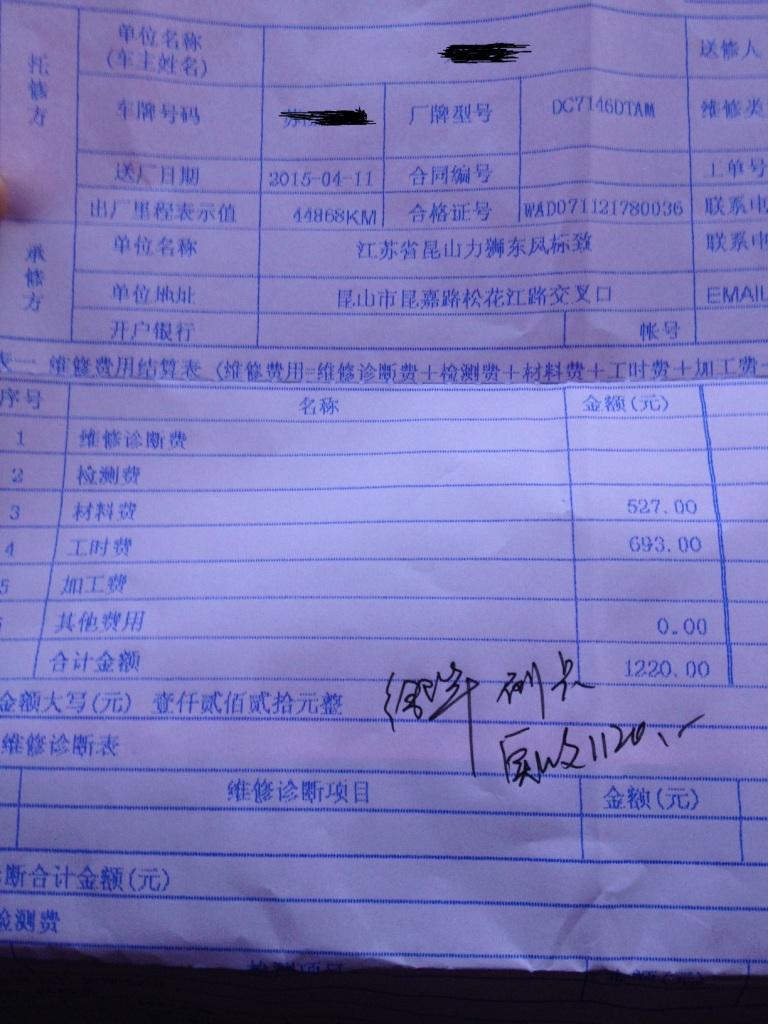 托修方
单位名称 送修人
(车主姓名)
车牌号码 苏 厂牌型号 DC7146DTAM 维修类
送厂日期 2015-04-11 合同编号 工单号
出厂里程表示值 44868KM 合格证号 WAD071121780036 联系电
承修方
单位名称 江苏省昆山力狮东风标致 联系电
单位地址 昆山市昆嘉路松花江路交叉口 EMAIL
开户银行 帐号
表一 维修费用结算表 (维修费用=维修诊断费+检测费+材料费+工时费+加工费+
序号 名称 金额(元)
1 维修诊断费
2 检测费
3 材料费 527.00
4 工时费 693.00
5 加工费
6 其他费用 0.00
合计金额 1220.00
金额大写(元) 壹仟贰佰贰拾元整
实收1120.-
维修诊断表
维修诊断项目 金额(元)
诊断合计金额(元)
检测费
检测项目 金额(元)